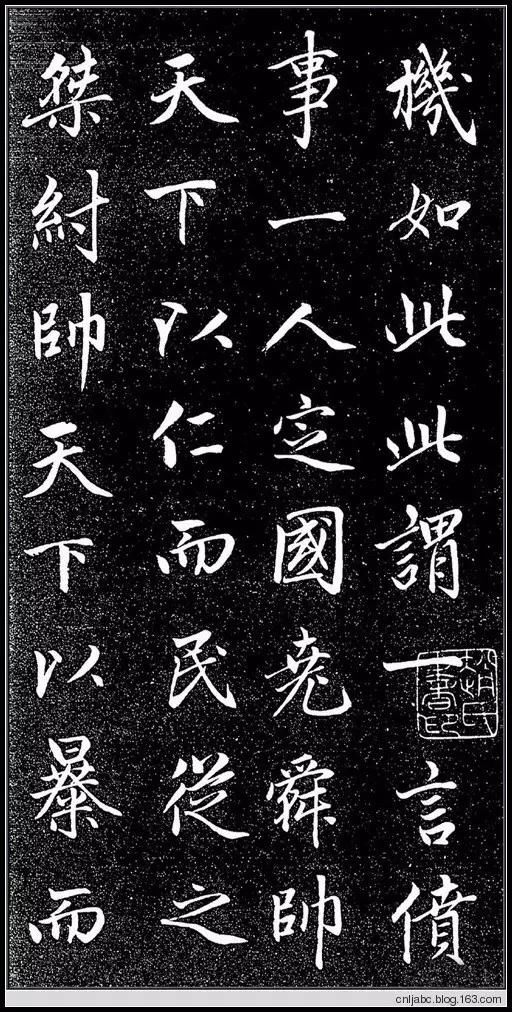 機如此此謂一言僨
事一人定國堯舜帥
天下以仁而民從之
桀紂帥天下以暴而
趙氏書印
cnljabc.blog.163.com